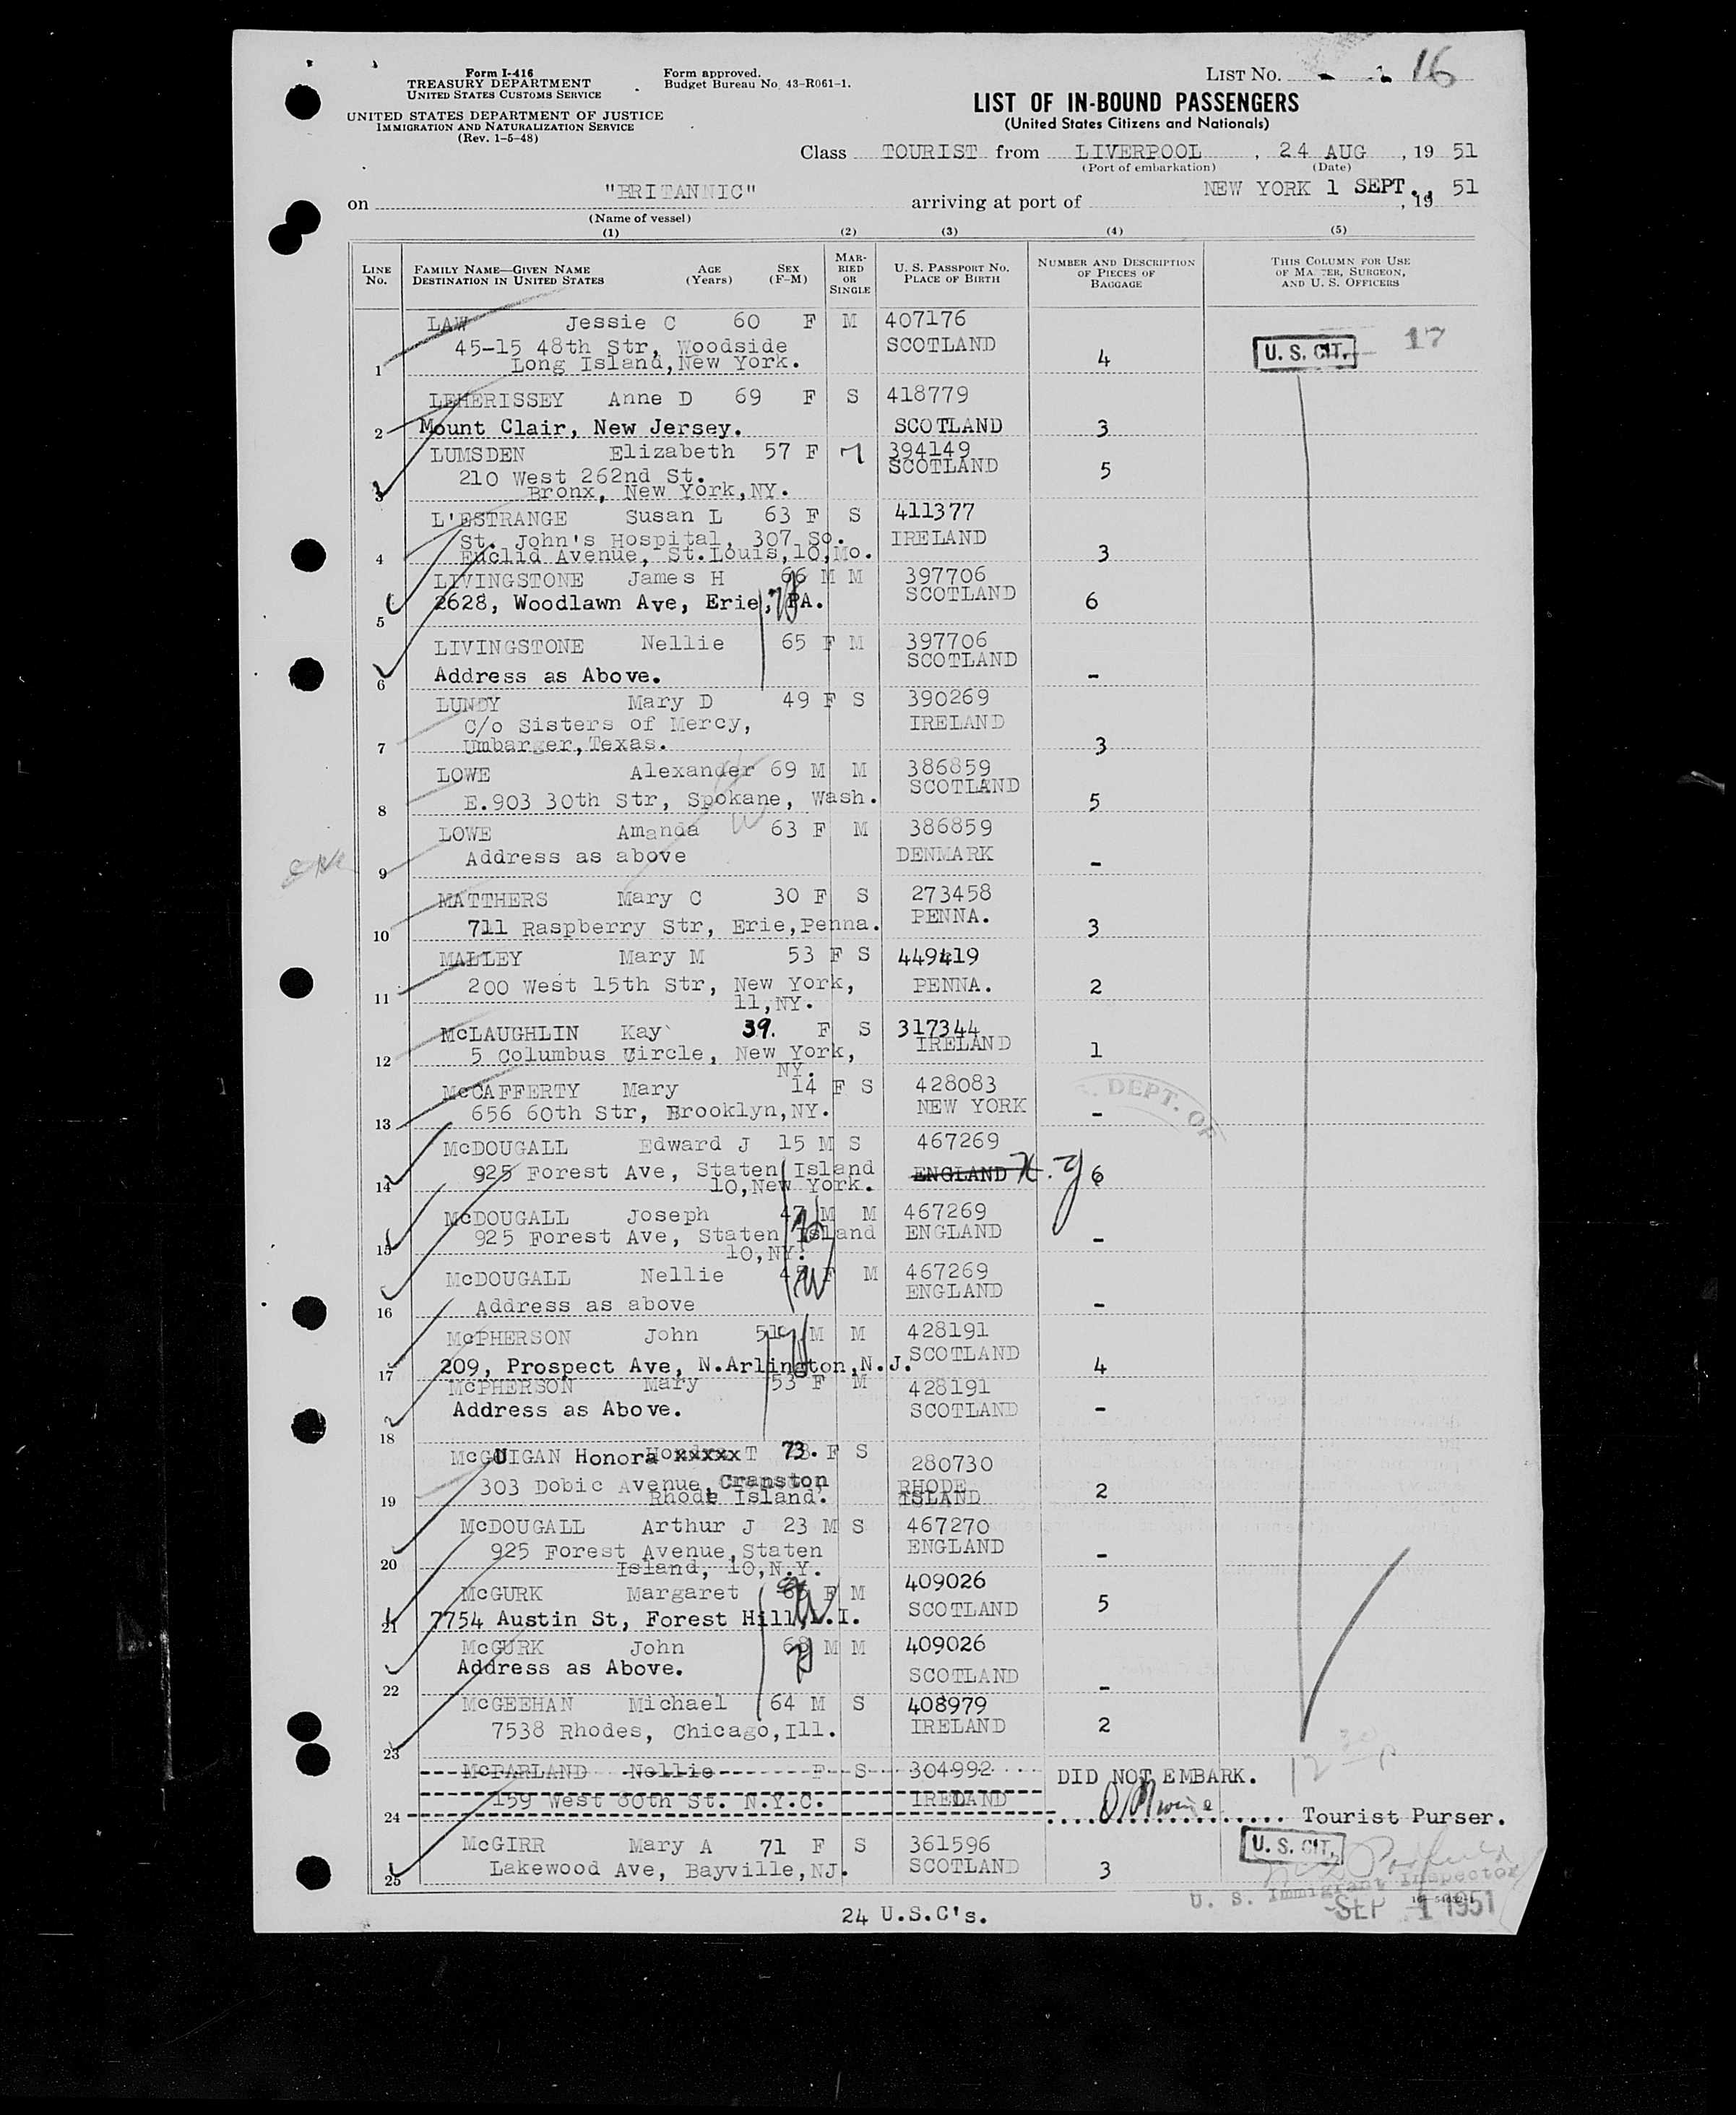 Form I-416
TREASURY DEPARTMENT
UNITED STATES CUSTOMS SERVICE
UNITED STATES DEPARTMENT OF JUSTICE
IMMIGRATION AND NATURALIZATION SERVICE
(Rev. 1-5-48)
Form approved.
Budget Bureau No. 43-R061-1.
LIST NO. 16
LIST OF IN-BOUND PASSENGERS
(United States Citizens and Nationals)
Class TOURIST from LIVERPOOL, 24 AUG, 19 51
(Port of embarkation) (Date)
on "BRITANNIC" arriving at port of NEW YORK 1 SEPT., 19 51
(Name of vessel)
(1) (2) (3) (4) (5)
LINE NO. FAMILY NAME—GIVEN NAME DESTINATION IN UNITED STATES AGE (Years) SEX (F-M) MARRIED OR SINGLE U. S. PASSPORT NO. PLACE OF BIRTH NUMBER AND DESCRIPTION OF PIECES OF BAGGAGE THIS COLUMN FOR USE OF MASTER, SURGEON, AND U. S. OFFICERS
LAW Jessie C 60 F M 407176
45-15 48th Str, Woodside SCOTLAND U. S. CIT. 17
1 Long Island, New York. 4
LEHERISSEY Anne D 69 F S 418779
2 Mount Clair, New Jersey. SCOTLAND 3
LUMSDEN Elizabeth 57 F M 394149
210 West 262nd St. SCOTLAND 5
3 Bronx, New York, NY.
L'ESTRANGE Susan L 63 F S 411377
St. John's Hospital, 307 So. IRELAND
4 Euclid Avenue, St.Louis,10,Mo. 3
LIVINGSTONE James H 66 M M 397706
5 2628, Woodlawn Ave, Erie, PA. SCOTLAND 6
LIVINGSTONE Nellie 65 F M 397706
SCOTLAND
6 Address as Above. -
LUNDY Mary D 49 F S 390269
C/o Sisters of Mercy, IRELAND
7 Umbarger, Texas. 3
LOWE Alexander 69 M M 386859
SCOTLAND
8 E.903 30th Str, Spokane, Wash. 5
LOWE Amanda 63 F M 386859
9 Address as above DENMARK -
MATTHERS Mary C 30 F S 273458
10 711 Raspberry Str, Erie,Penna. PENNA. 3
MALLEY Mary M 53 F S 449419
11 200 West 15th Str, New York, PENNA. 2
11,NY.
McLAUGHLIN Kay 39. F S 317344
12 5 Columbus Circle, New York, IRELAND 1
NY.
McCAFFERTY Mary 14 F S 428083
13 656 60th Str, Brooklyn,NY. NEW YORK -
. DEPT. OF
McDOUGALL Edward J 15 M S 467269
925 Forest Ave, Staten Island ENGLAND N.Y 6
14 10,New York.
McDOUGALL Joseph 47 M M 467269
925 Forest Ave, Staten Island ENGLAND
15 10,NY. -
McDOUGALL Nellie F M 467269
ENGLAND
16 Address as above -
McPHERSON John 51 M M 428191
SCOTLAND
17 209, Prospect Ave, N.Arlington,N.J. 4
McPHERSON Mary 53 F M 428191
18 Address as Above. SCOTLAND -
McGUIGAN Honora xxxxxx T 73. F S 280730
303 Dobic Avenue, Cranston RHODE
19 Rhode Island. ISLAND 2
McDOUGALL Arthur J 23 M S 467270
925 Forest Avenue, Staten ENGLAND
20 Island, 10,N.Y. -
McGURK Margaret F M 409026
21 7754 Austin St, Forest Hill,L.I. SCOTLAND 5
McGURK John 68 M M 409026
Address as Above. SCOTLAND
22 -
McGEEHAN Michael 64 M S 408979
7538 Rhodes, Chicago,Ill. IRELAND 2
23
McPARLAND Nellie F S 304992 DID NOT EMBARK.
159 West 80th St. N.Y.C. IRELAND
24 Tourist Purser.
McGIRR Mary A 71 F S 361596 U. S. CIT.
25 Lakewood Ave, Bayville,NJ. SCOTLAND 3
U. S. Immigrant Inspector
24 U.S.C's. SEP 1 1951